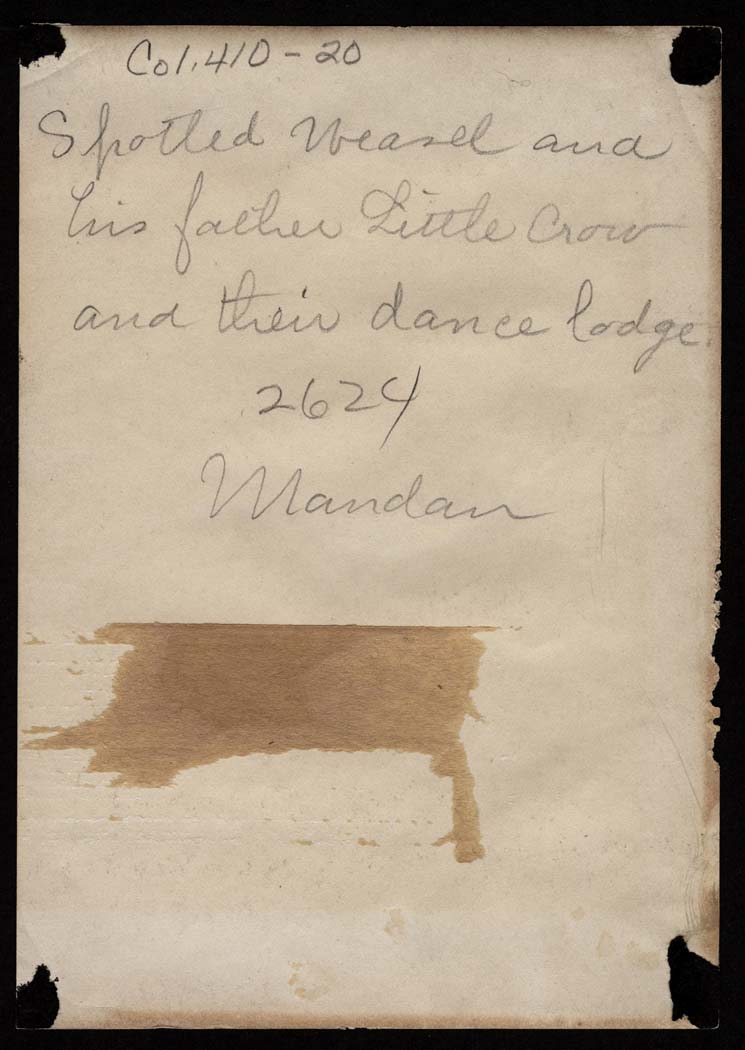 Col. 410-20
Spotted Weasel and
his father Little Crow
and their dance lodge.
2624
Mandan